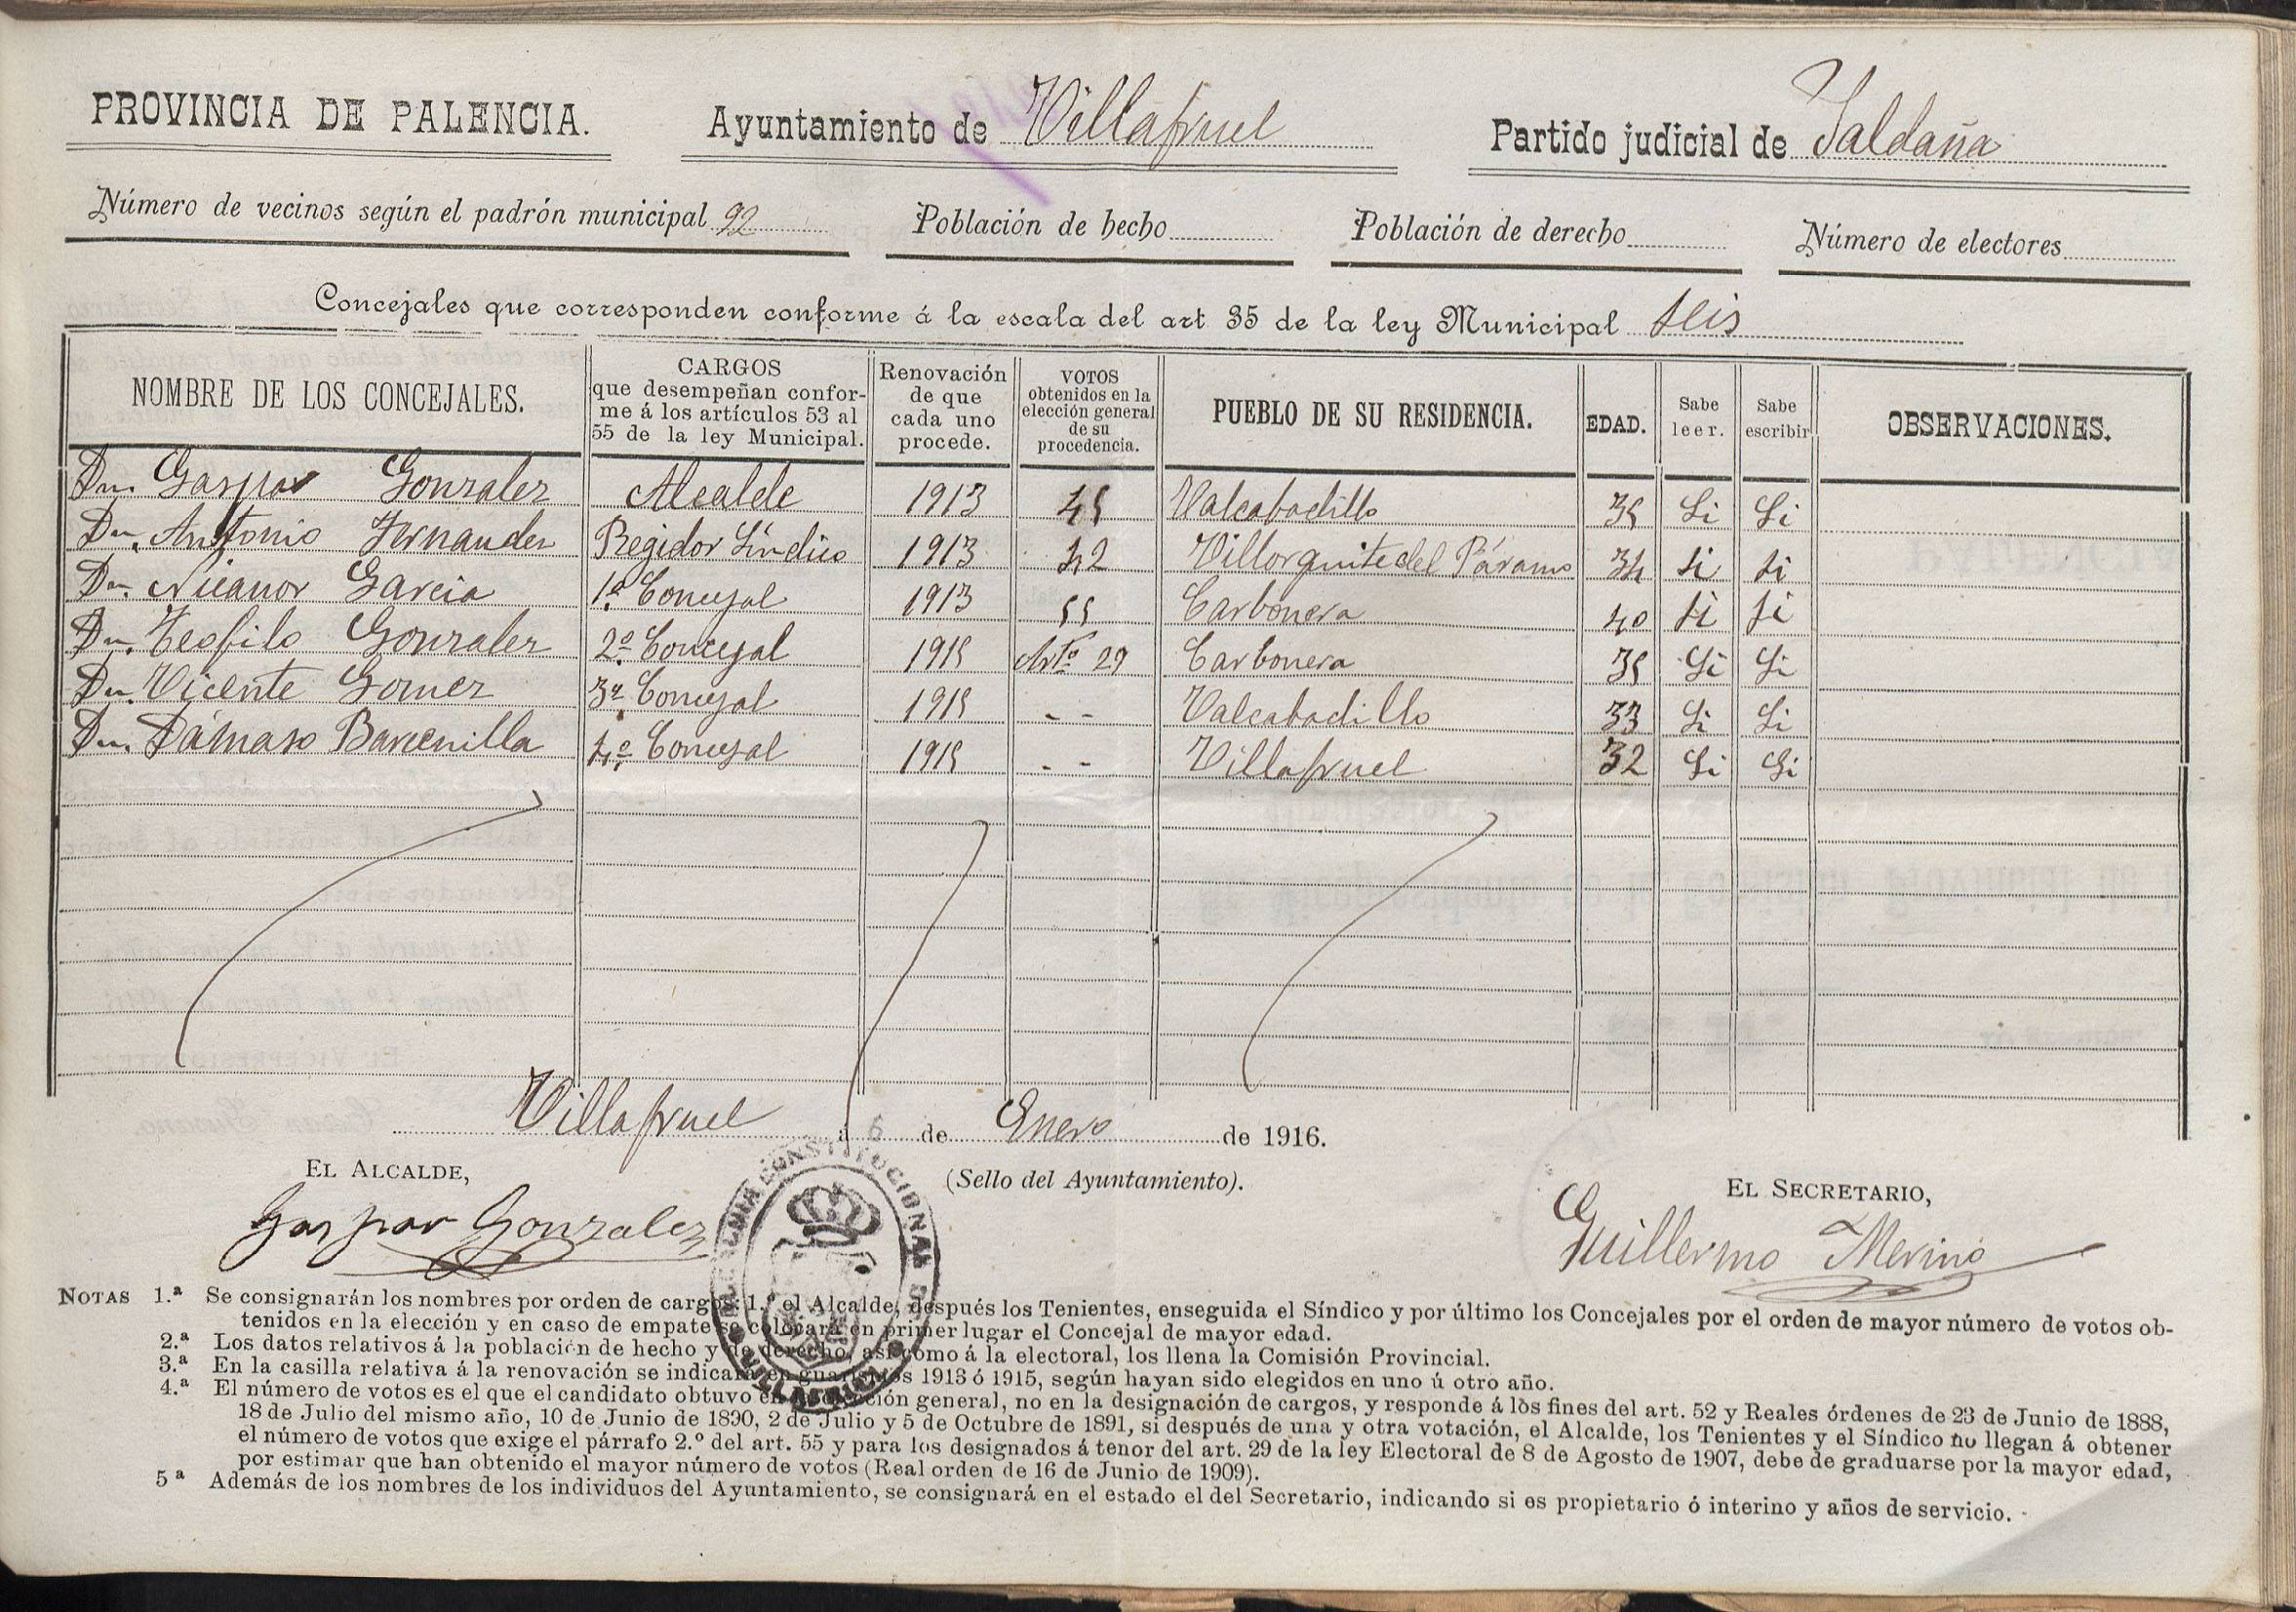 PROVINCIA DE PALENCIA. Ayuntamiento de Villafruel Partido judicial de Saldaña
Número de vecinos según el padrón municipal 92 Población de hecho Población de derecho Número de electores
Concejales que corresponden conforme á la escala del art 35 de la ley Municipal seis
NOMBRE DE LOS CONCEJALES. CARGOS que desempeñan confor- me á los artículos 53 al 55 de la ley Municipal. Renovación de que cada uno procede. VOTOS obtenidos en la elección general de su procedencia. PUEBLO DE SU RESIDENCIA. EDAD. Sabe leer. Sabe escribir OBSERVACIONES.
Dn. Gaspar Gonzalez Alcalde 1913 45 Valcabadillo 35 Si Si
Dn. Antonio Fernandez Regidor Síndico 1913 42 Villorquite del Páramo 34 si si
Dn. Nicanor Garcia 1º Concejal 1913 55 Carbonera 40 si si
Dn. Teofilo Gonzalez 2º Concejal 1915 Artº 29 Carbonera 35 Si Si
Dn. Vicente Gomez 3º Concejal 1915 - - Valcabadillo 33 Si Si
Dn. Dámaso Barcenilla 4º Concejal 1915 - - Villafruel 32 Si Si
Villafruel á 6 de Enero de 1916.
EL ALCALDE, (Sello del Ayuntamiento). EL SECRETARIO,
Gaspar Gonzalez Guillermo Merino
ALCALDIA CONSTITUCIONAL DE VILLAFRUEL
NOTAS 1.ª Se consignarán los nombres por orden de cargos: 1.º el Alcalde, después los Tenientes, enseguida el Síndico y por último los Concejales por el orden de mayor número de votos ob-
tenidos en la elección y en caso de empate se colocará en primer lugar el Concejal de mayor edad.
2.ª Los datos relativos á la población de hecho y de derecho, así como á la electoral, los llena la Comisión Provincial.
3.ª En la casilla relativa á la renovación se indicará en guarismos 1913 ó 1915, según hayan sido elegidos en uno ú otro año.
4.ª El número de votos es el que el candidato obtuvo en la elección general, no en la designación de cargos, y responde á lós fines del art. 52 y Reales órdenes de 23 de Junio de 1888,
18 de Julio del mismo año, 10 de Junio de 1890, 2 de Julio y 5 de Octubre de 1891, si después de una y otra votación, el Alcalde, los Tenientes y el Síndico no llegan á obtener
el número de votos que exige el párrafo 2.º del art. 55 y para los designados á tenor del art. 29 de la ley Electoral de 8 de Agosto de 1907, debe de graduarse por la mayor edad,
por estimar que han obtenido el mayor número de votos (Real orden de 16 de Junio de 1909).
5ª Además de los nombres de los individuos del Ayuntamiento, se consignará en el estado el del Secretario, indicando si es propietario ó interino y años de servicio.